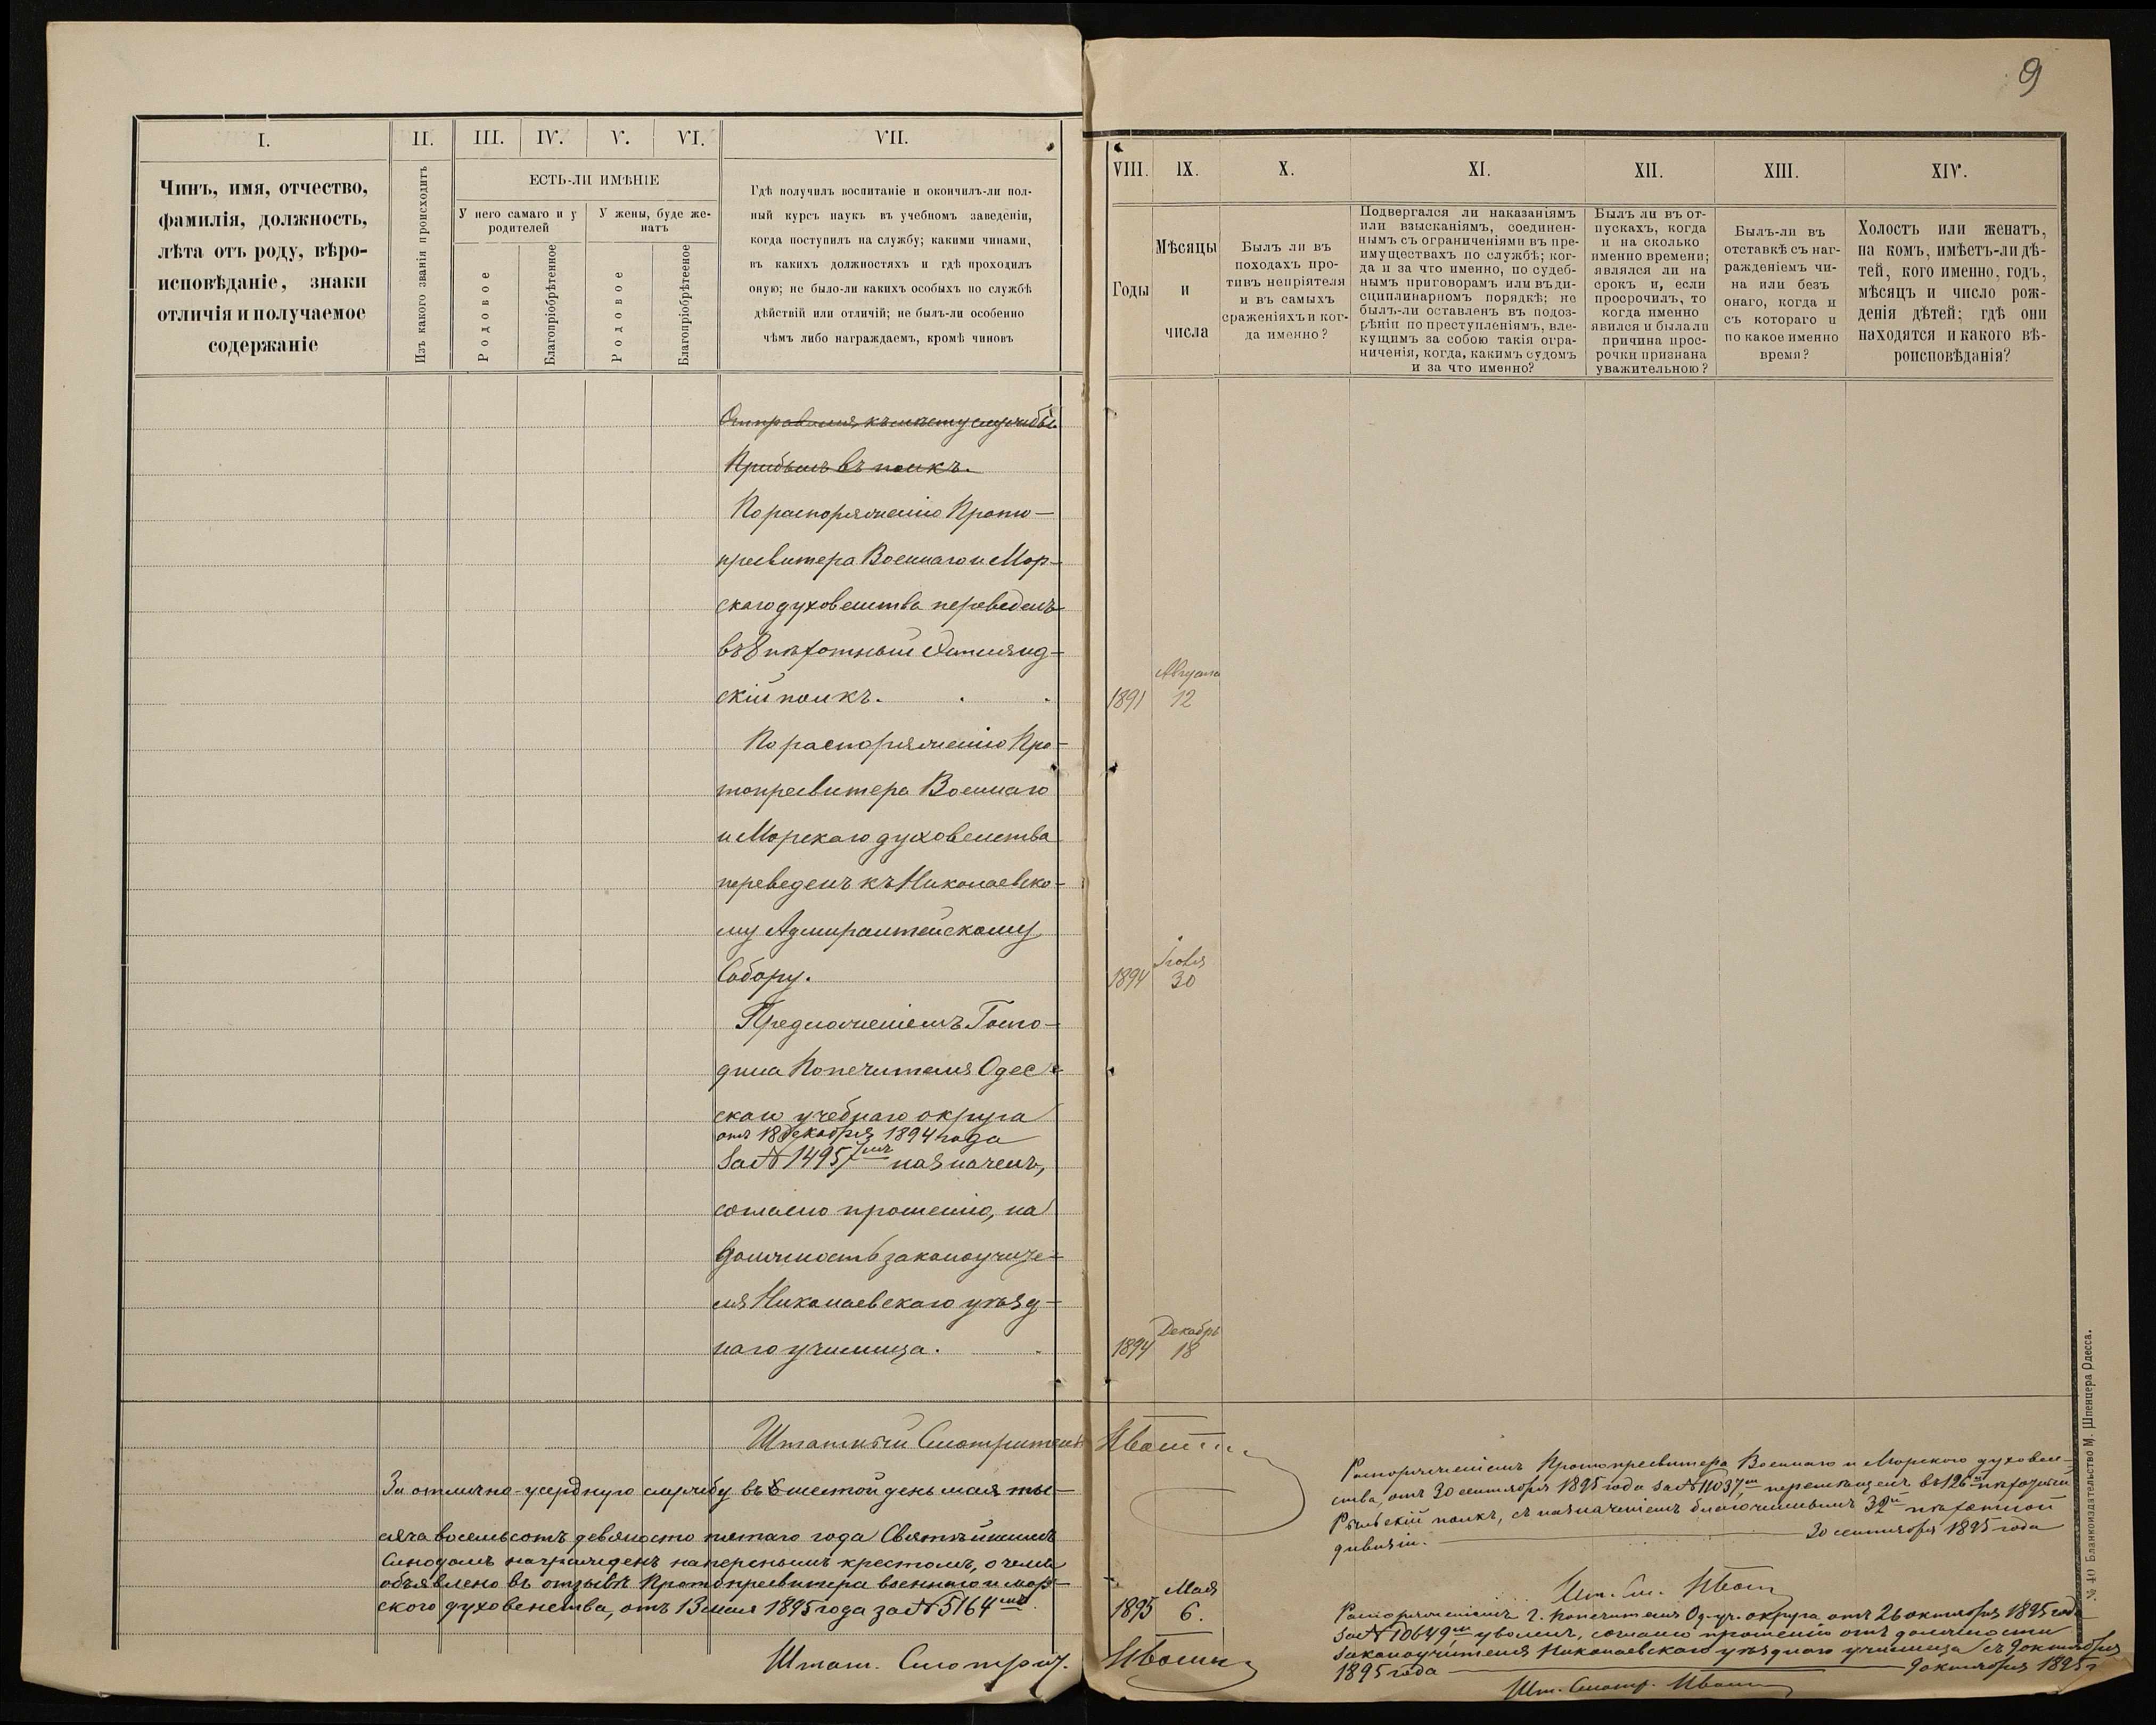 9
I.
II.
III.
IV.
V.
VI.
VII.
Чинъ, имя, отчество,
фамилія, должность,
лѣта отъ роду, вѣро-
исповѣданіе, знаки
отличія и получаемое
содержаніе
Изъ какого званія происходитъ
ЕСТЬ-ЛИ ИМѢНІЕ
У него самаго и у
родителей
У жены, буде же-
натъ
Родовое
Благопріобрѣтенное
Родовое
Благопріобрѣтенное
Гдѣ получилъ воспитаніе и окончилъ-ли пол-
ный курсъ наукъ въ учебномъ заведеніи,
когда поступилъ на службу; какими чинами,
въ какихъ должностяхъ и гдѣ проходилъ
оную; не было-ли какихъ особыхъ по службѣ
дѣйствій или отличій; не былъ-ли особенно
чѣмъ либо награждаемъ, кромѣ чиновъ
VIII.
IX.
X.
XI.
XII.
XIII.
XIV.
Годы
Мѣсяцы
и
числа
Былъ ли въ
походахъ про-
тивъ непріятеля
и въ самыхъ
сраженіяхъ и ког-
да именно?
Подвергался ли наказаніямъ
или взысканіямъ, соединен-
нымъ съ ограниченіями въ пре-
имуществахъ по службѣ; ког-
да и за что именно, по судеб-
нымъ приговорамъ или въ ди-
сциплинарномъ порядкѣ; не
былъ-ли оставленъ въ подоз-
рѣніи по преступленіямъ, вле-
кущимъ за собою такія огра-
ниченія, когда, какимъ судомъ
и за что именно?
Былъ ли въ от-
пускахъ, когда
и на сколько
именно времени;
являлся ли на
срокъ и, если
просрочилъ, то
когда именно
явился и была ли
причина прос-
рочки признана
уважительною?
Былъ-ли въ
отставкѣ съ наг-
ражденіемъ чи-
на или безъ
онаго, когда и
съ котораго и
по какое именно
время?
Холостъ или женатъ,
на комъ, имѣетъ-ли дѣ-
тей, кого именно, годъ,
мѣсяцъ и число рож-
денія дѣтей; гдѣ они
находятся и какого вѣ-
роисповѣданія?
Отправился къ мѣсту службы
Прибылъ въ полкъ.
По распоряженію Прото-
пресвитера Военнаго и Мор-
скаго духовенства переведенъ
въ 8 пѣхотный Эстлянд-
скій полкъ.
1891 Августа 12
По распоряженію Про-
топресвитера Военнаго
и Морскаго духовенства
переведенъ къ Николаевско-
му Адмиралтейскому
Собору.
1894 30
Предложеніемъ Госпо-
дина Попечителя Одес-
скаго учебнаго округа
отъ 18 декабря 1894 года
за № 14957мъ назначенъ,
согласно прошенію, на
должность законоучите-
ля Николаевскаго уѣзд-
наго училища.
1894 Декабрь 18
Штатный Смотритель
За отлично-усердную службу въ шестой день мая ты-
сяча восемьсотъ девяносто пятаго года Святѣйшимъ
Синодомъ награжденъ наперснымъ крестомъ, о чемъ
объявлено въ отзывѣ Протопресвитера военнаго и мор-
ского духовенства, отъ 13 мая 1895 года за № 5164мъ.
1895 Мая 6.
Штат. Смотрит.
Распоряженіемъ Протопресвитера Военнаго и Морского духовен-
ства, отъ 30 сентября 1895 года за № 11037мъ перемѣщенъ въ 126й пѣхотный
Рыльскій полкъ, съ назначеніемъ благочиннымъ 32й пѣхотной
дивизіи. 30 сентября 1895 года
Шт. См.
Распоряженіемъ г. Попечителя Од. уч. округа отъ 26 октября 1895 года
за № 10649мъ уволенъ, согласно прошенію отъ должности
законоучителя Николаевскаго уѣзднаго училища съ 9 октября
1895 года 9 октября 1895 г.
Шт. Смотр.
№ 40 Бланкоиздательство М. Шпенцера Одесса.